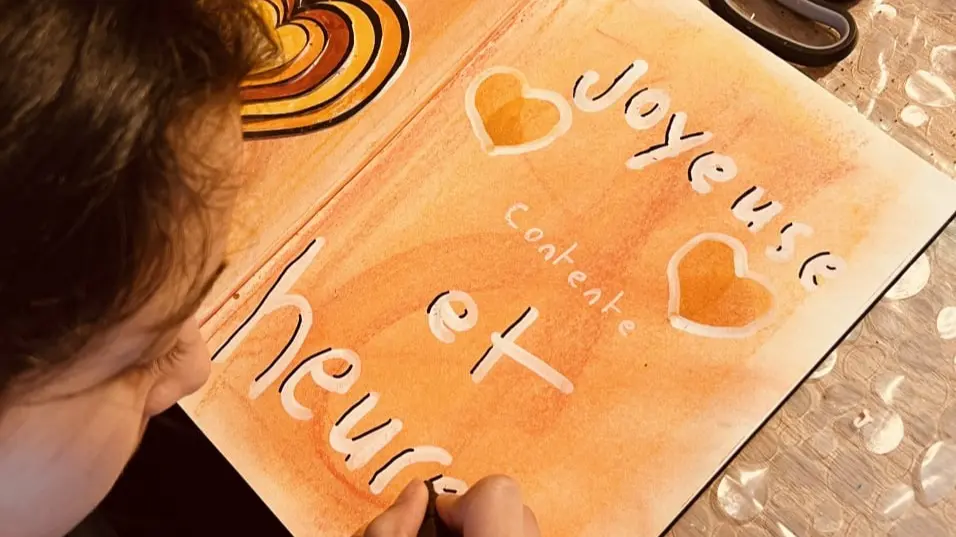 Joyeuse
contente
et
heure